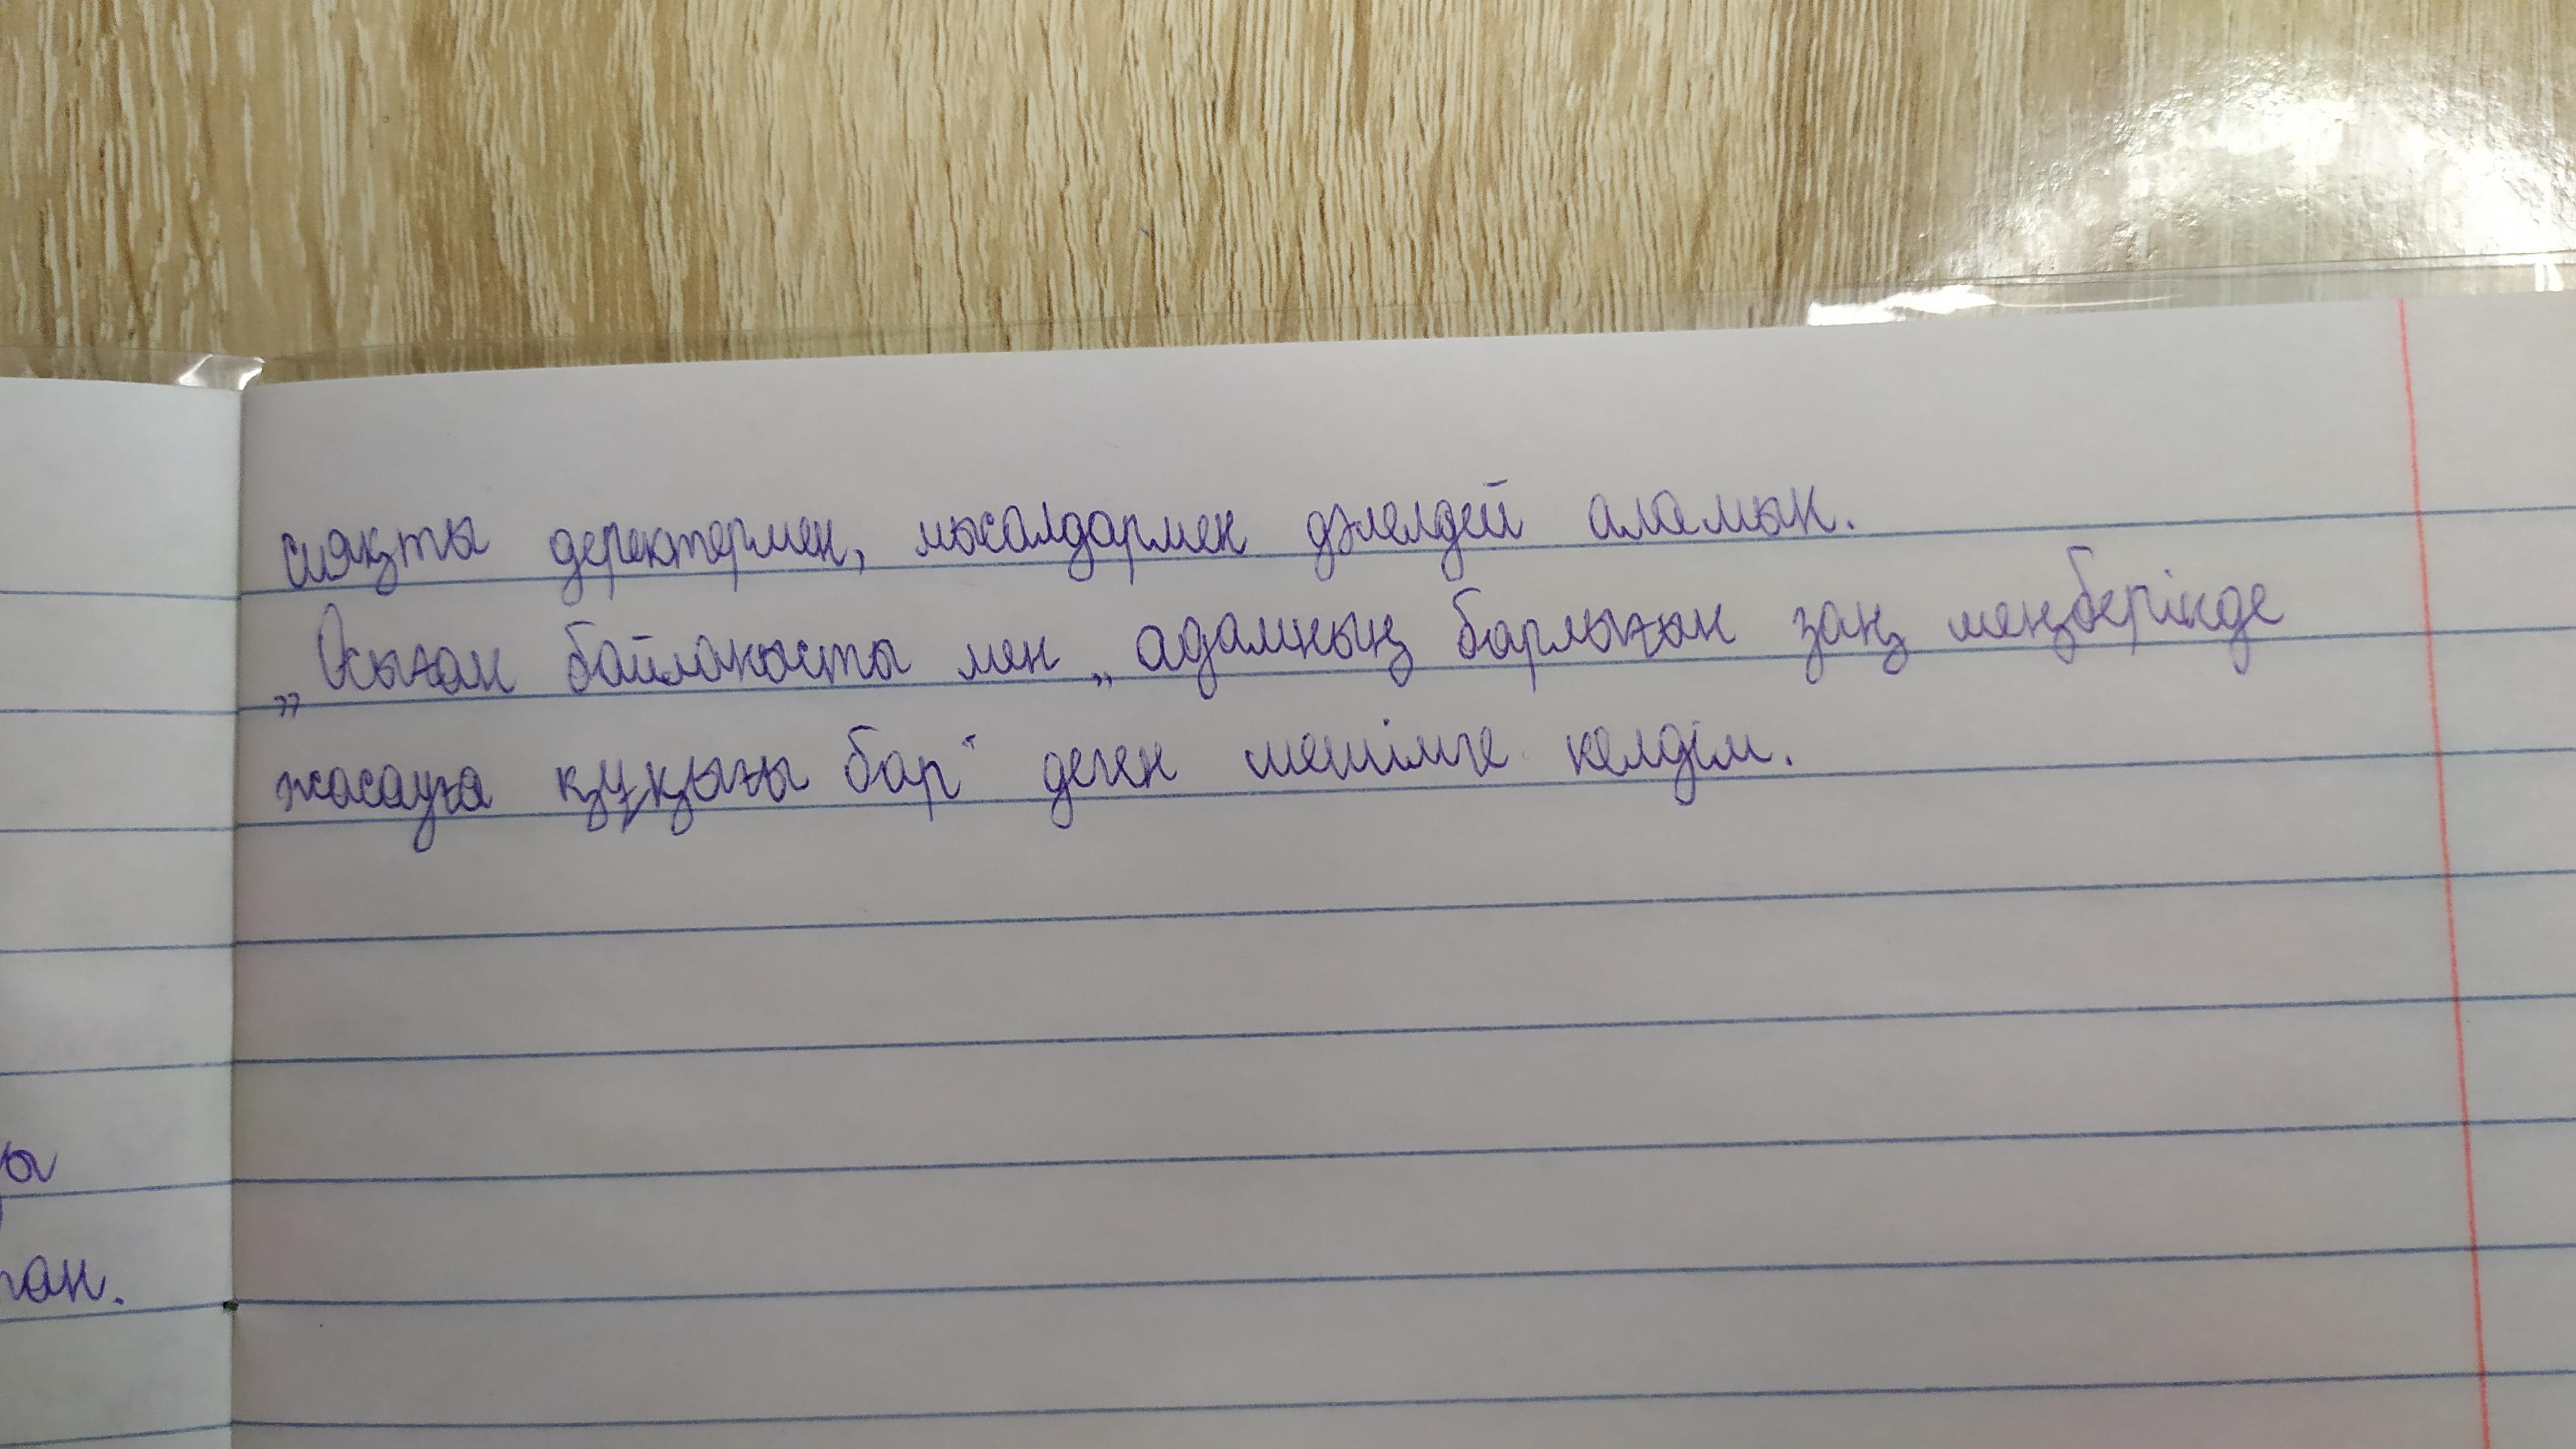 сияқты деректермен, мысалдармен дәлелдей аламын.
„Осыған байланысты мен „адамның барлығын заң меңберінде
жасауға құқығы бар“ деген шешімге келдім.
ы
ған.